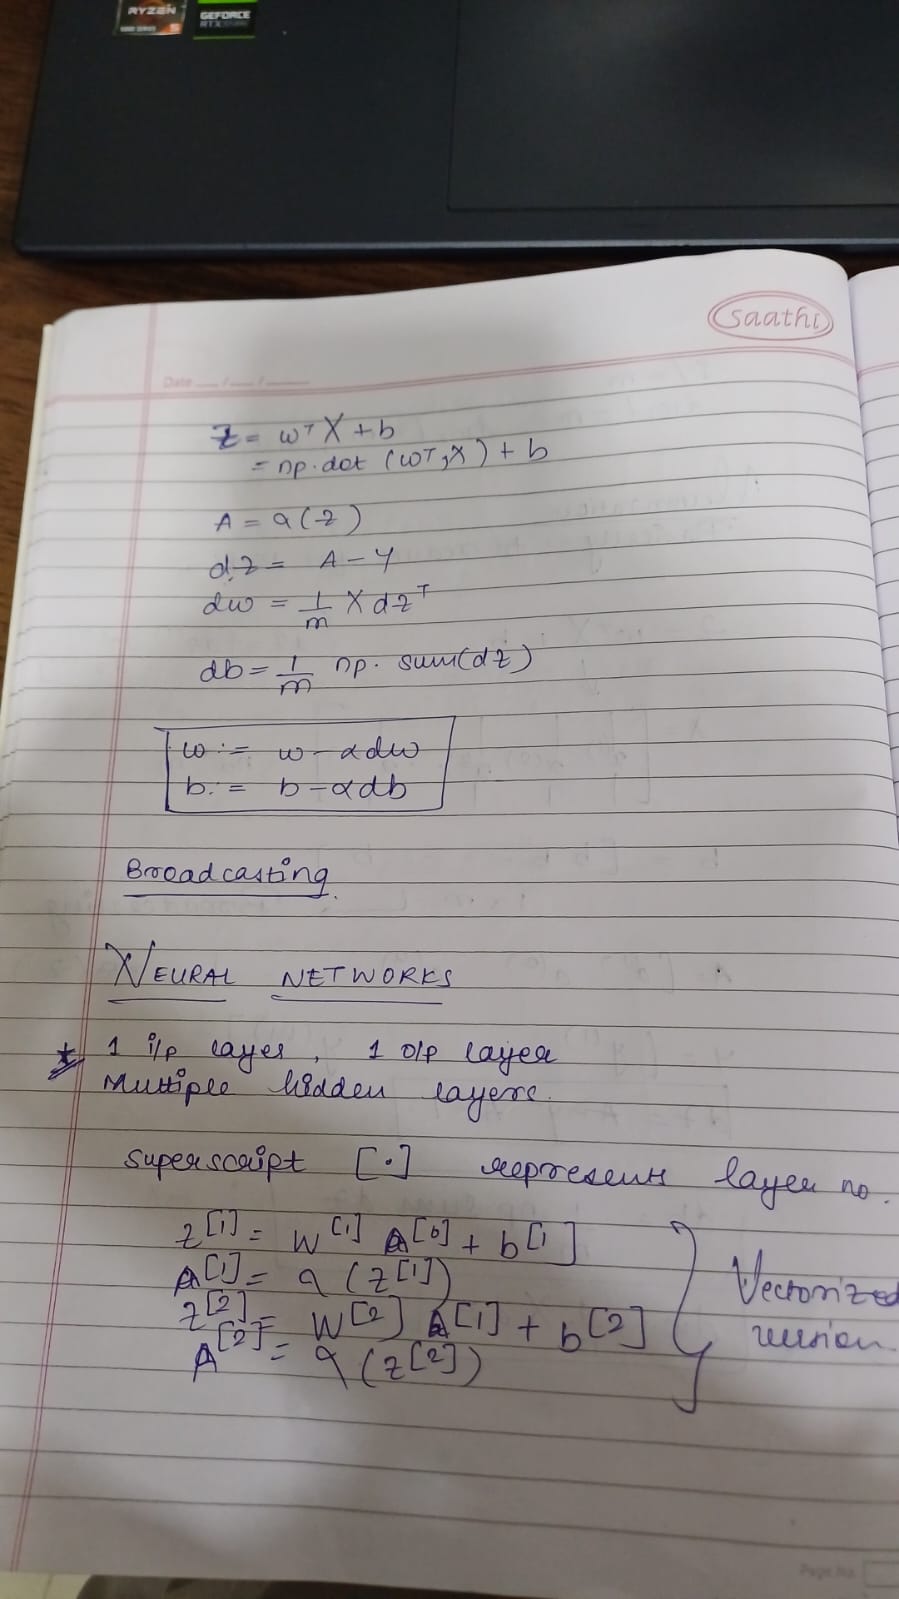 RYZEN
GEFORCE
RTX
saathi
Date __/__/__
Z = wᵀX + b
= np.dot (wᵀ, X) + b
A = a(z)
dz = A - Y
dw = 1/m X dzᵀ
db = 1/m np. sum(dz)
w := w - αdw
b := b - αdb
Broadcasting.
NEURAL NETWORKS
* 1 i/p layer, 1 o/p layer
Multiple hidden layers.
superscript [.] represents layer no.
z[1] = W[1] A[0] + b[1]
A[1] = a(z[1])
z[2] = W[2] A[1] + b[2]
A[2] = a(z[2])
Vectorized
version.
Page No.